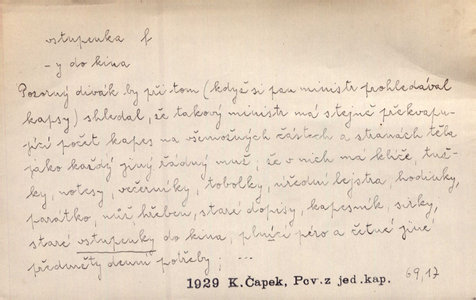 vstupenka f
- y do kina
Pozorný divák by při tom (když si pan ministr prohledával
kapsy) shledal, že takový ministr má stejně překvapu-
jící počet kapes na všemožných částech a stranách těla
jako každý jiný řádný muž; že v nich má klíče, tuž-
ky, notesy, večerníky, tobolky, úřední lejstra, hodinky,
párátko, nůž, hřeben, staré dopisy, kapesník, sirky,
staré vstupenky do kina, plnicí péro a četné jiné
předměty denní potřeby; ...
1929 K. Čapek, Pov. z jed. kap. 69,17